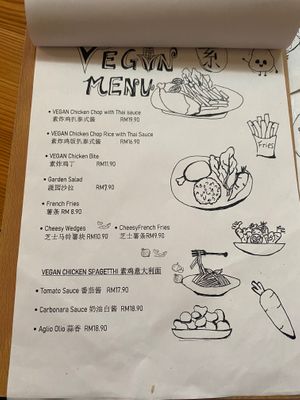 VEGAN 素
MENU
• VEGAN Chicken Chop with Thai sauce
素炸鸡扒泰式酱 RM19.90
• VEGAN Chicken Chop Rice with Thai Sauce
素炸鸡饭扒泰式酱 RM16.90
• VEGAN Chicken Bite
素炸鸡丁 RM11.90
• Garden Salad
蔬园沙拉 RM7.90
• French Fries
薯条 RM 8.90
• Cheesy Wedges • CheesyFrench Fries
芝士马铃薯块 RM10.90 芝士薯条RM9.90
VEGAN CHICKEN SPAGETTHI 素鸡意大利面
• Tomato Sauce 番茄酱 RM17.90
• Carbonara Sauce 奶油白酱 RM18.90
• Aglio Olio 蒜香 RM18.90
Fries